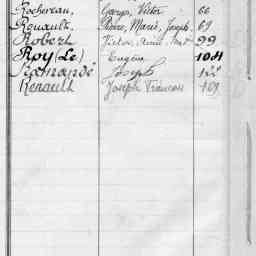 Rochereau, Georges, Victor 66
Renault, Pierre, Marie, Joseph 69
Robert Victor, Aimé, 99
Roy (Le) Eugène 104
Ramandé Joseph
Renault Joseph Francois 169